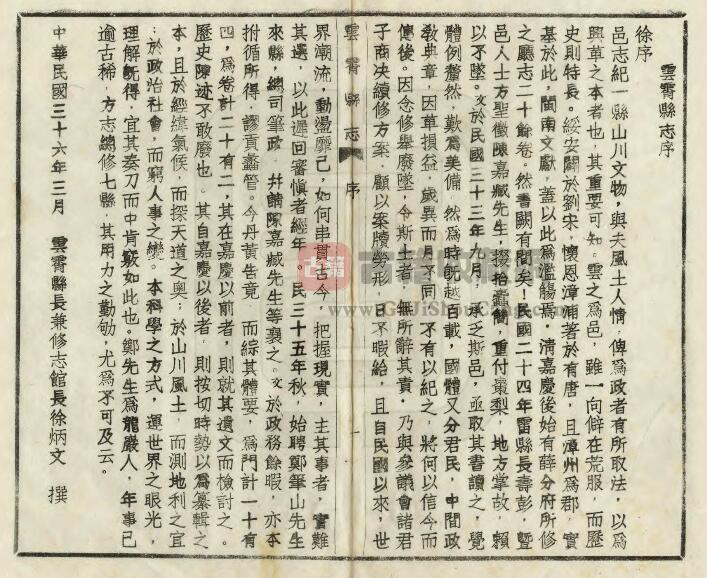 雲霄縣志序
徐序
邑志紀一縣山川文物，與夫風土人情，俾為政者有所取法，以為
興革之本者也，其重要可知。雲之為邑，雖一向僻在荒服，而歷
史則特長。綏安闢於劉宋，懷恩漳浦著於有唐，且漳州為郡，實
基於此，閩南文獻，蓋以此為濫觴焉。清嘉慶後始有薛分府所修
之廳志二十餘卷。然書闕有間矣！民國二十四年雷縣長壽彭，曁
邑人士方聖徵陳嘉臧先生，掇拾蠧簡，重付棗梨，地方掌故，賴
以不墜。文於民國三十三年八月，承乏斯邑，亟取其書讀之，覺
體例釐然，歎為美備，然為時旣越百載，國體又分君民，中間政
敎典章，因革損益，歲異而月不同，不有以紀之，將何以信今而
傳後。因念修舉廢墜，令斯土者，無所辭其責，乃與參議會諸君
子商決續修方案，顧以案牘勞形，日不暇給，且自民國以來，世
雲霄縣志 序 一
界潮流，動盪靡已，如何串貫古今，把握現實，主其事者，實難
其選，以此遲回審愼者經年。民三十五年秋，始聘鄭筆山先生
來縣，總司筆政，幷請陳嘉臧先生等襄之。文於政務餘暇，亦本
拊循所得，謬貢蠡管。今丹黃告竟，而綜其體要，為門計一十有
四，為卷計二十有二，其在嘉慶以前者，則就其遺文而檢討之。
歷史陳迹不敢廢也。其自嘉慶以後者，則按切時勢以為纂輯之
本，且於經緯氣候，而探天道之奧；於山川風土，而測地利之宜
；於政治社會，而窮人事之變。本科學之方式，運世界之眼光，
理解旣得，宜其奏刀而中肯綮如此也。鄭先生為龍巖人，年事已
逾古稀，方志總修七縣，其用力之勤劬，尤為不可及云。
中華民國三十六年三月 雲霄縣長兼修志館長徐炳文 撰
古籍
GuJiShouCang.Com